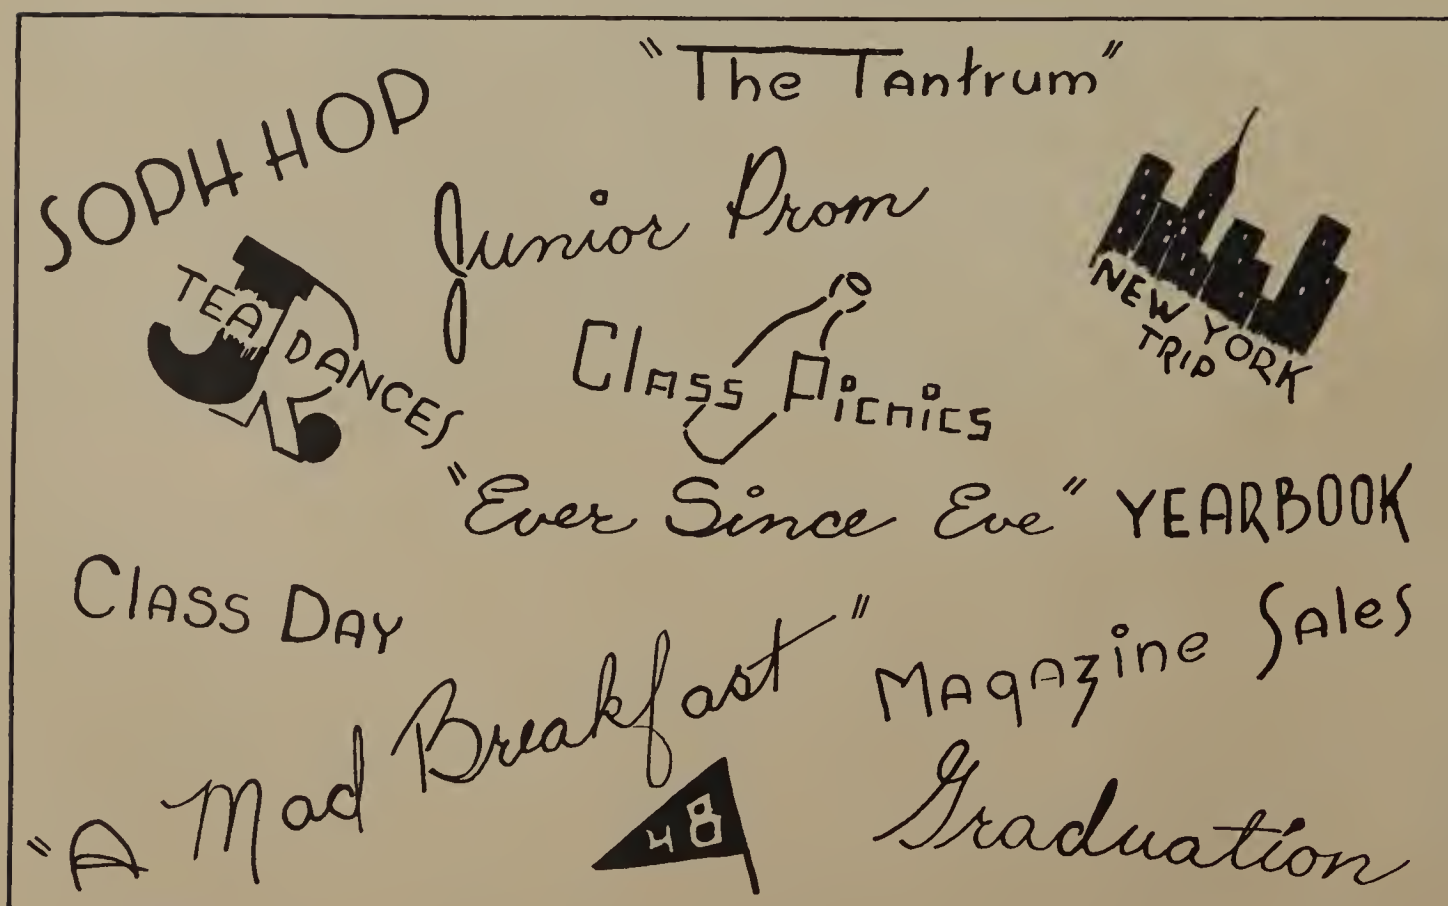 "The Tantrum"
SOPH HOP
Junior Prom
NEW YORK
TRIP
TEA DANCES
Class Picnics
"Ever Since Eve"
YEARBOOK
Class Day
Magazine Sales
"A Mad Breakfast"
48
Graduation